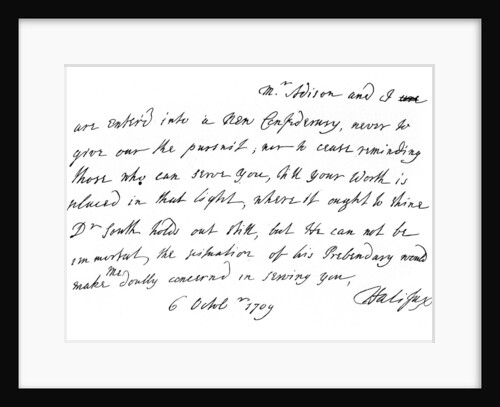 Mr. Adison and I are
are enter'd into a New Confederacy, never to
give over the pursuit, nor to cease reminding
those who can serve you, till your worth is
placed in that light, where it ought to shine
Dr South holds out still, but he can not be
immortal, the situation of his Prebendary would
make me doubly concern'd in serving you,
6 Octobr. 1709
Halifax